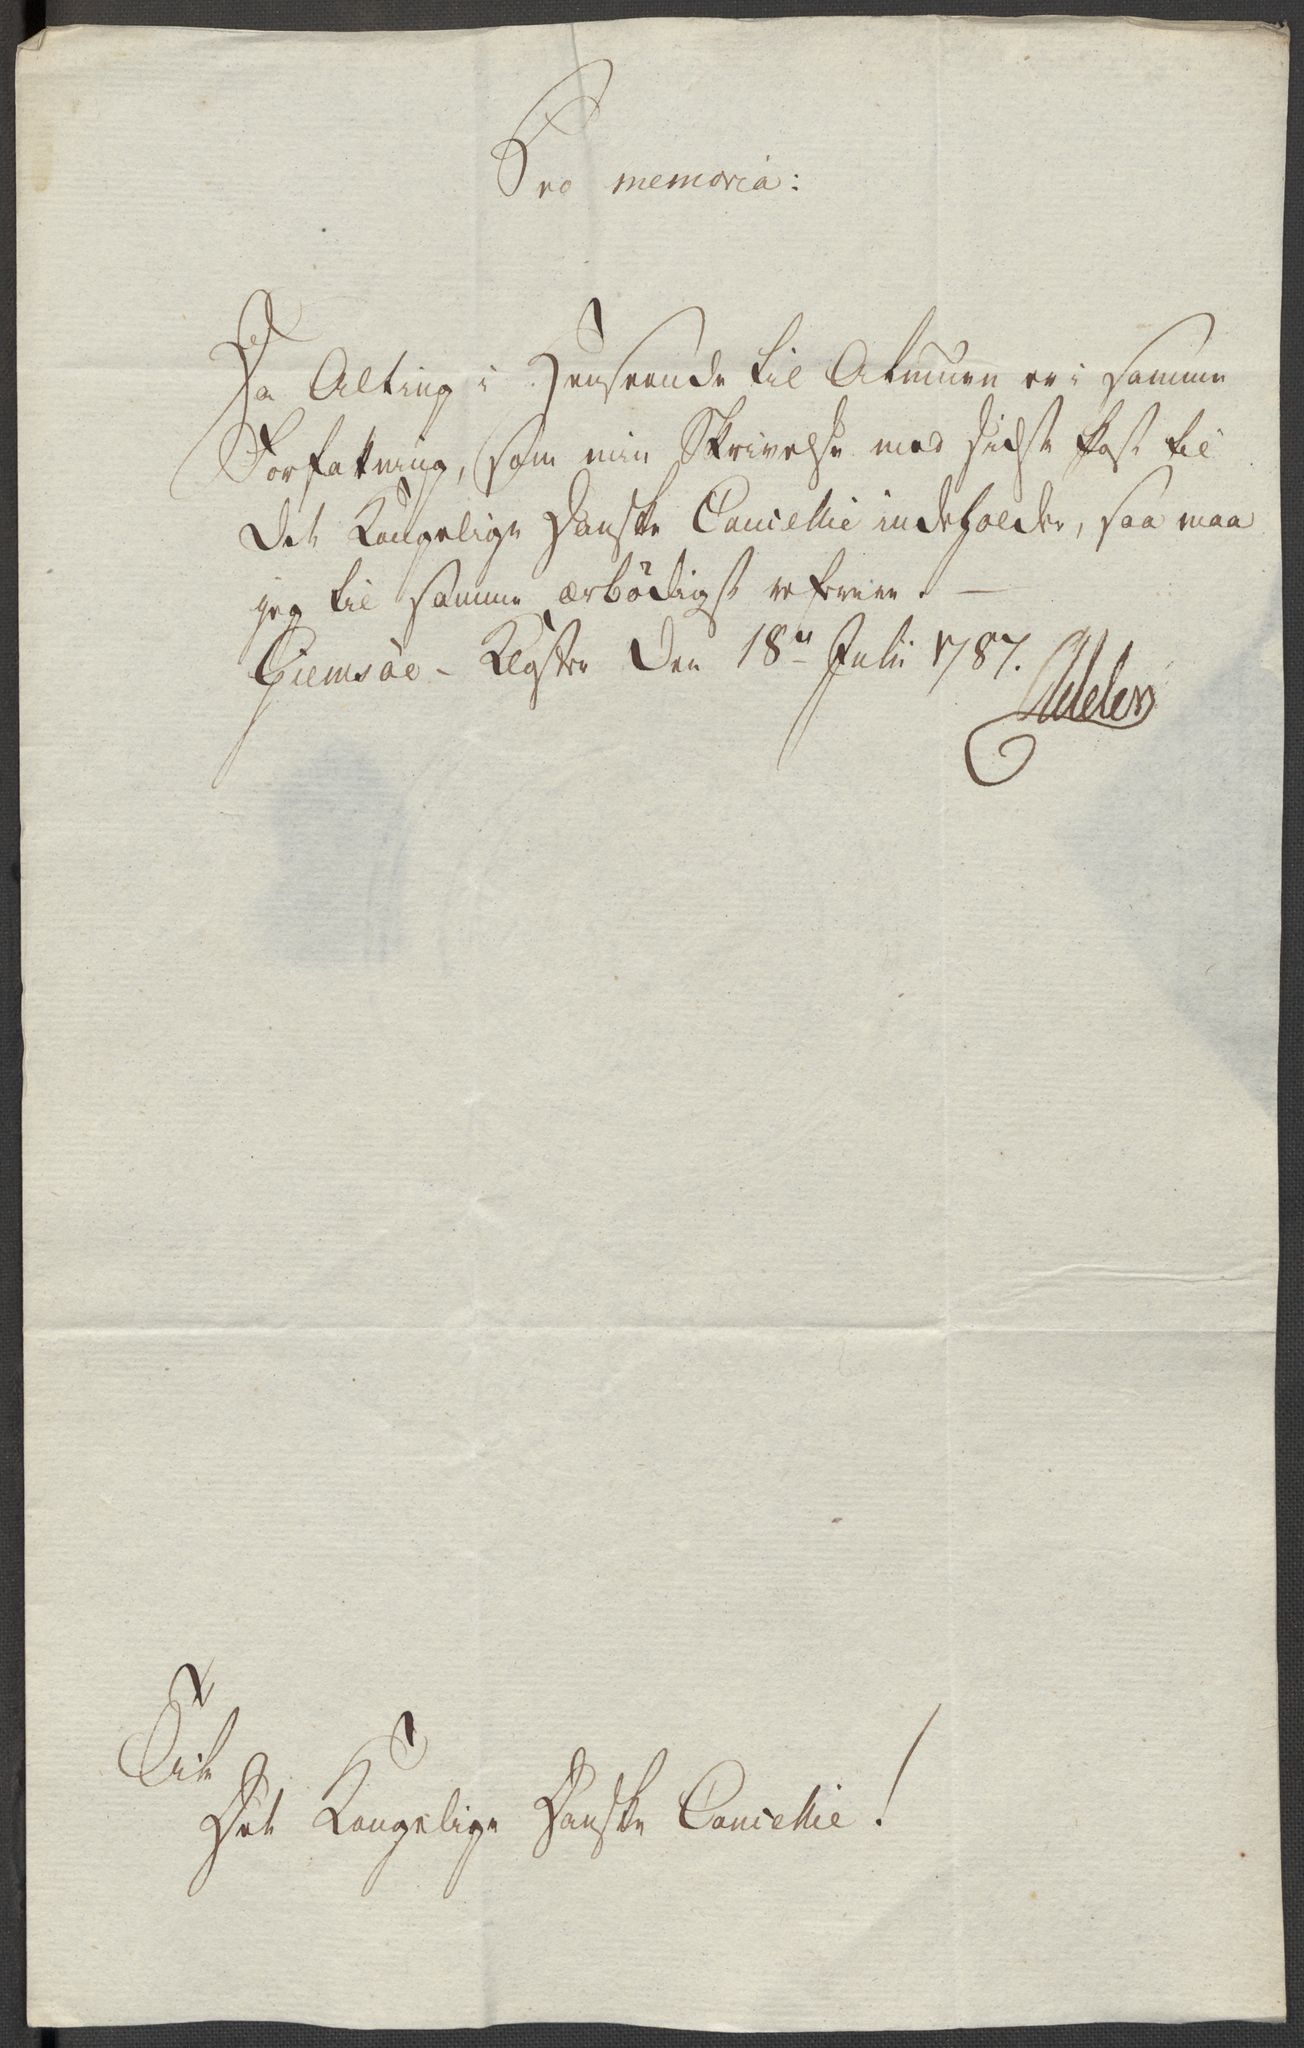 Pro memoria:
Da Alting i Henseende til Almuen er i samme
Forfatning, som min Skrivelse med sidste Post til
Det Kongelige Danske Cancellie indeholder, saa maa
jeg til samme ærbödigst referere. —
Giemsöe-Kloster den 18de Julii 1787.
Adeler
Til
Det Kongelige Danske Cancellie!